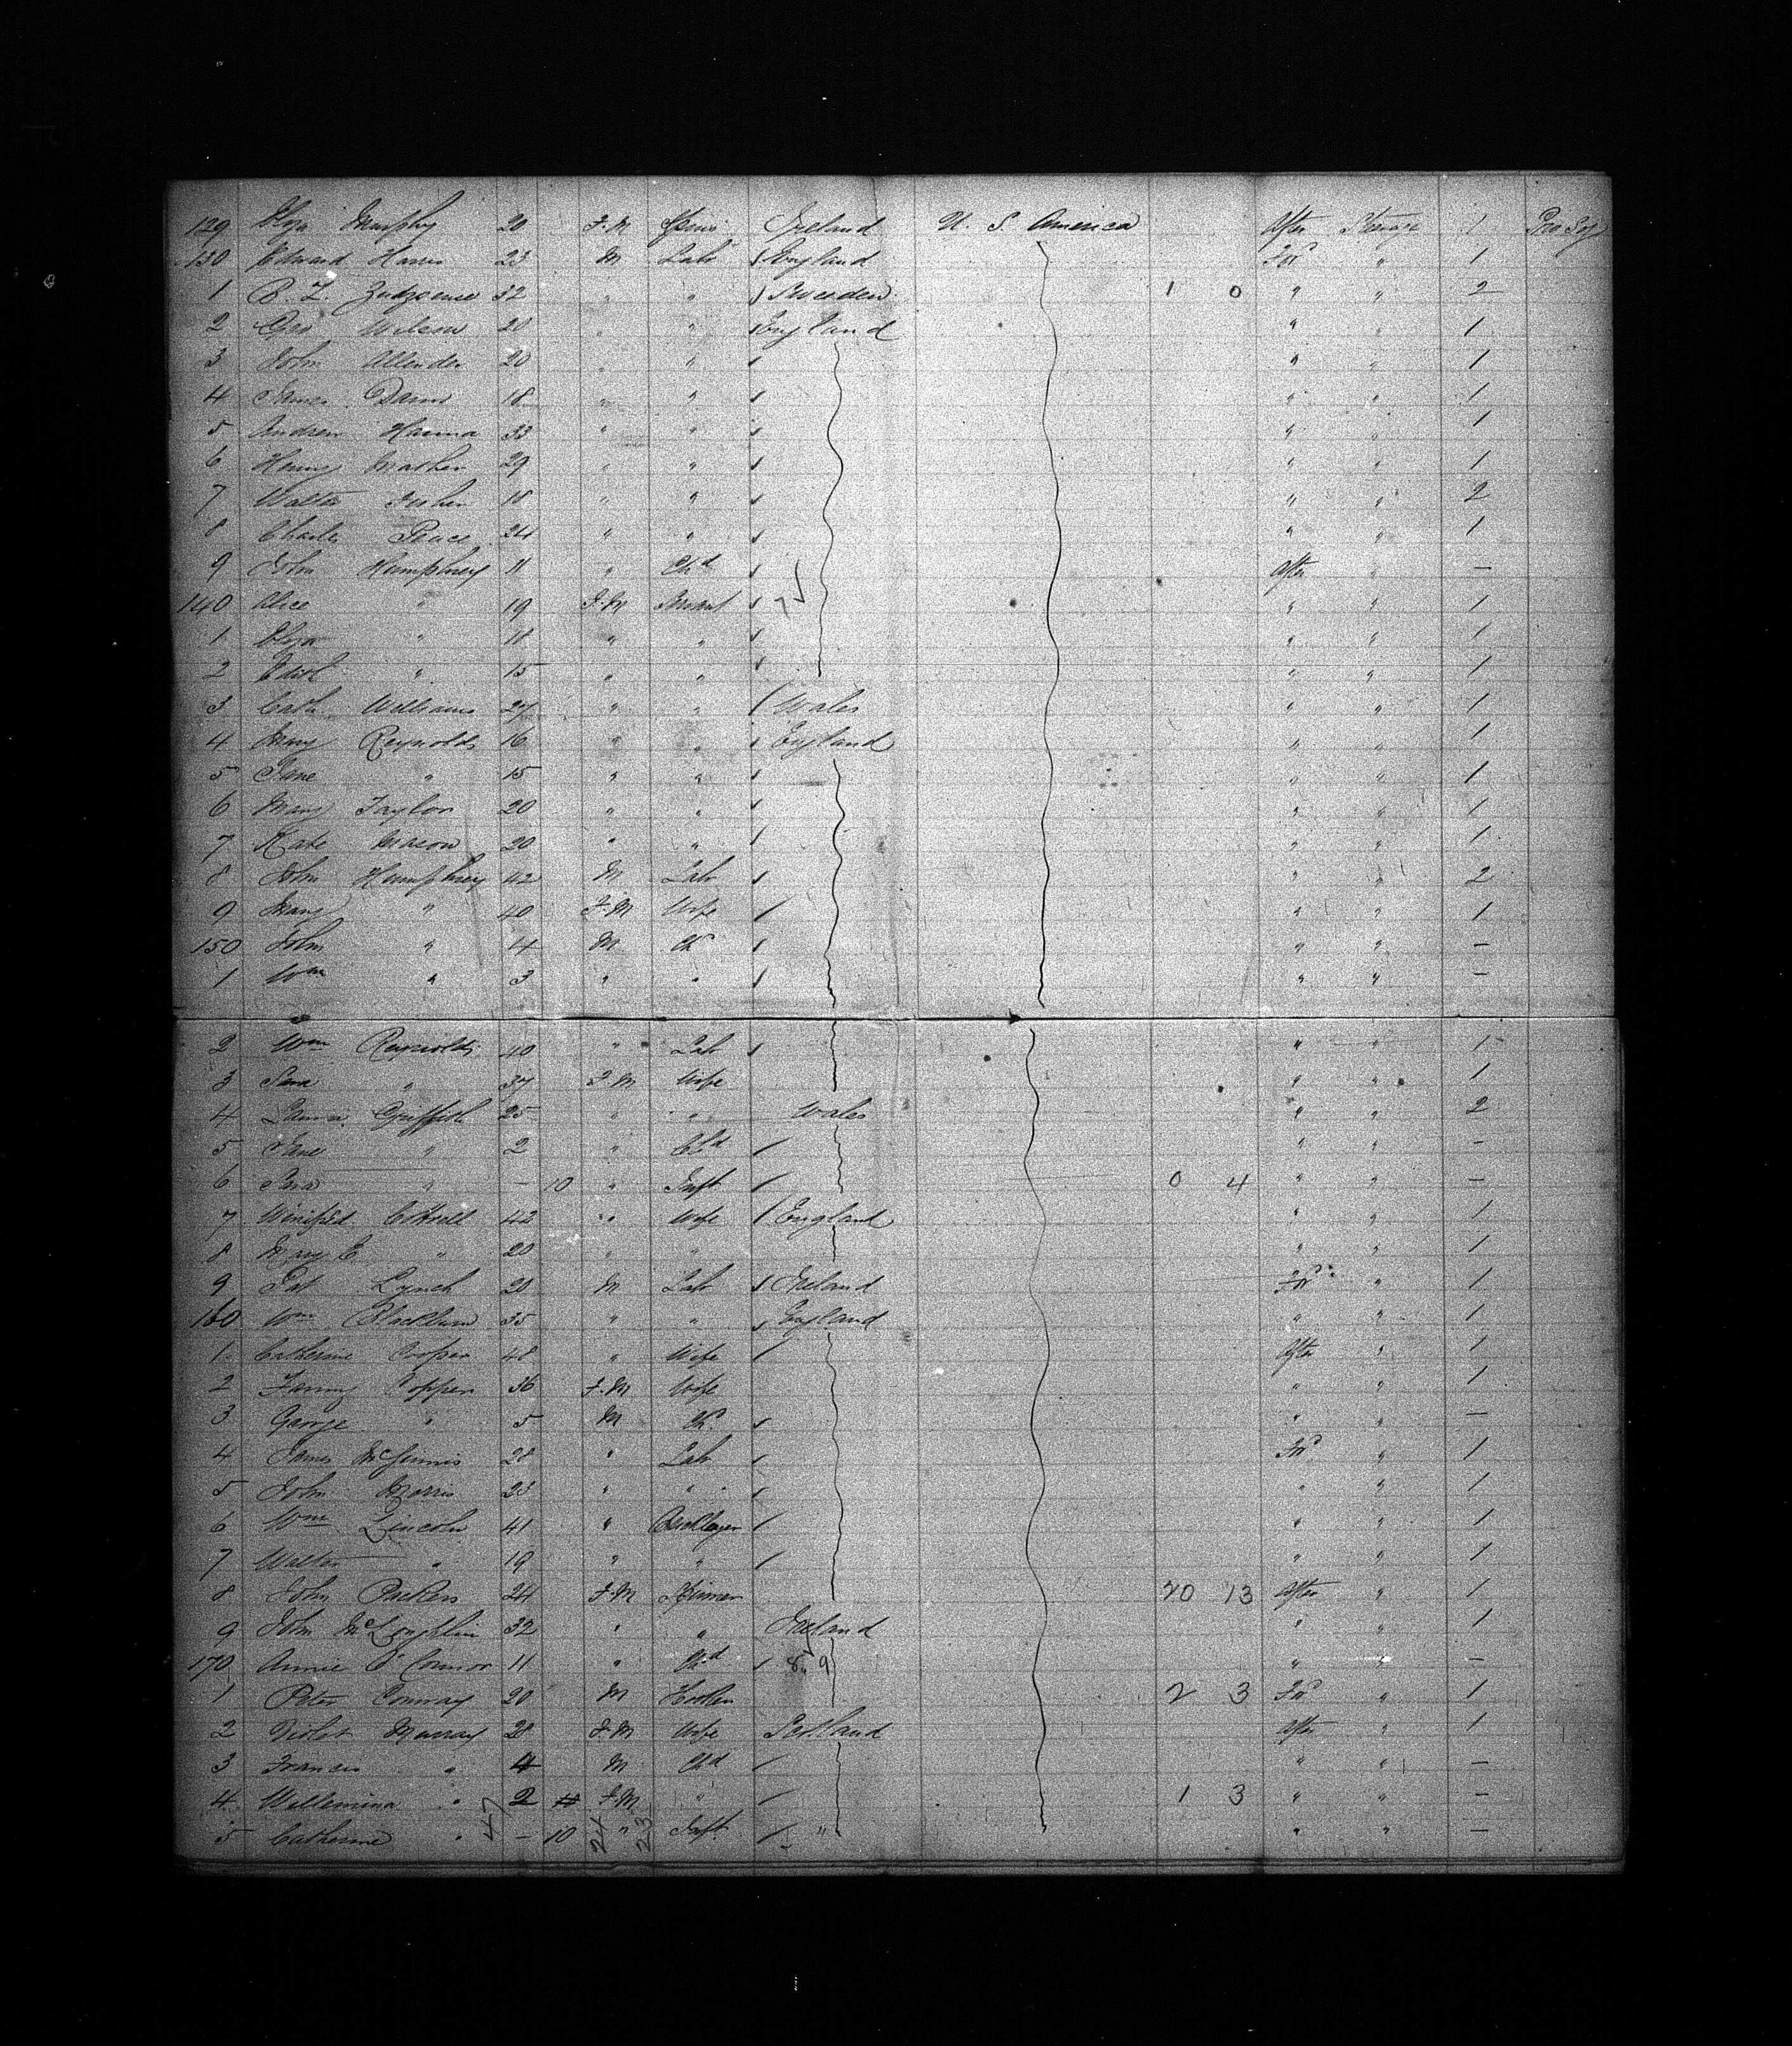 129 Eliza Murphy 20 F.M Spins Ireland U. S. America After Steerage 1
130 Edward Harris 23 M Labr England For " 1
1 32 " " Sweden 1 0 " " 2
2 Geo Wilson 20 " " England " " 1
3 John Allender 20 " " " " 1
4 James 18 " " " " 1
5 Andrew Hanna 33 " " " " 1
6 Henry 29 " " " " 1
7 Walter Fisher 18 " " " " 2
8 Charles Peace 24 " " " " 1
9 John Humphrey 11 " Chd After " —
140 Alice " 19 F.M Servant " " 1
1 Eliza " 18 " " " " 1
2 Edith " 15 " " " " 1
3 Cath Williams 27 " " Wales " " 1
4 Mary Reynolds 16 " " England " " 1
5 Jane " 15 " " " " 1
6 Mary Taylor 20 " " " " 1
7 Kate Mason 20 " " " " 1
8 John Humphrey 42 M Labr " " 2
9 Mary " 40 F.M Wife " " 1
150 John " 4 M Chd " " —
1 Wm " 3 " " " " —
2 Wm Reynolds 40 " Labr " " 1
3 " 37 F.M Wife " " 1
4 Griffith 25 " " Wales " " 2
5 Jane " 2 " Chd " " —
6 " — 10 " Inft 0 4 " " —
7 Winifred 42 " Wife England " " 1
8 Mary E. " 20 " " " " 1
9 Pat Lynch 20 M Labr Ireland For " 1
160 Wm Blackburn 35 " " England " " 1
1 Catherine Cooper 48 " Wife After " 1
2 Fanny 36 F.M Wife " " 1
3 George " 5 M Chd " " —
4 James McGinnis 28 " Labr For " 1
5 John Morris 23 " " " " 1
6 Wm Lincoln 41 " " " 1
7 Walter " 19 " " " " 1
8 John 24 F.M 20 13 After " 1
9 John McLoughlin 32 " " Ireland " " 1
170 Annie O'Connor 11 " Chd " " —
1 Peter Conway 20 M 2 3 For " 1
2 Violet Murray 28 F.M Wife Scotland After " 1
3 Francis " 4 M Chd " " —
4 Willemina " 2 F.M " 1 3 " " —
5 Catherine " — 10 " Inft " " " —
47 24 23